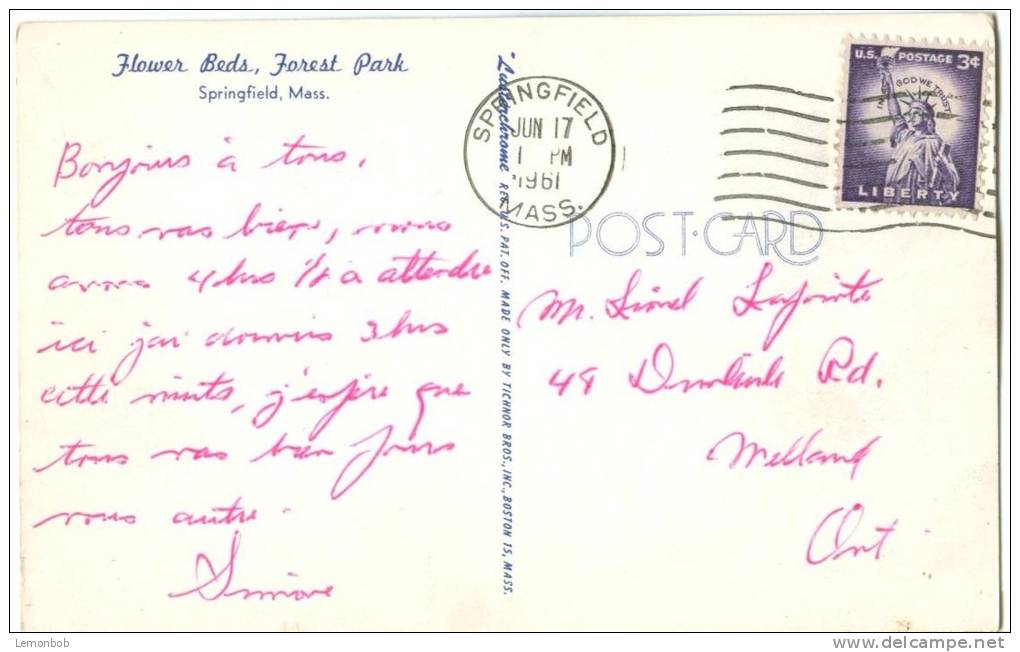 Flower Beds, Forest Park
Springfield, Mass.
Bonjour à tous,
tous vas bien, nous
avons 4 hrs ½ à attendre
ici j'ai dormis 3 hrs
cette nuits, j'espère que
tous vas bien pour
vous autre.
Simone
"Lusterchrome" REG. U.S. PAT. OFF. MADE ONLY BY TICHNOR BROS., INC., BOSTON 15, MASS.
SPRINGFIELD
JUN 17
1 PM
1961
MASS.
U.S. POSTAGE 3¢
IN GOD WE TRUST
LIBERTY
POST·CARD
Mr. Lionel Lajointe
48 Rd.
Welland
Ont
Lemonbob
www.delcampe.net